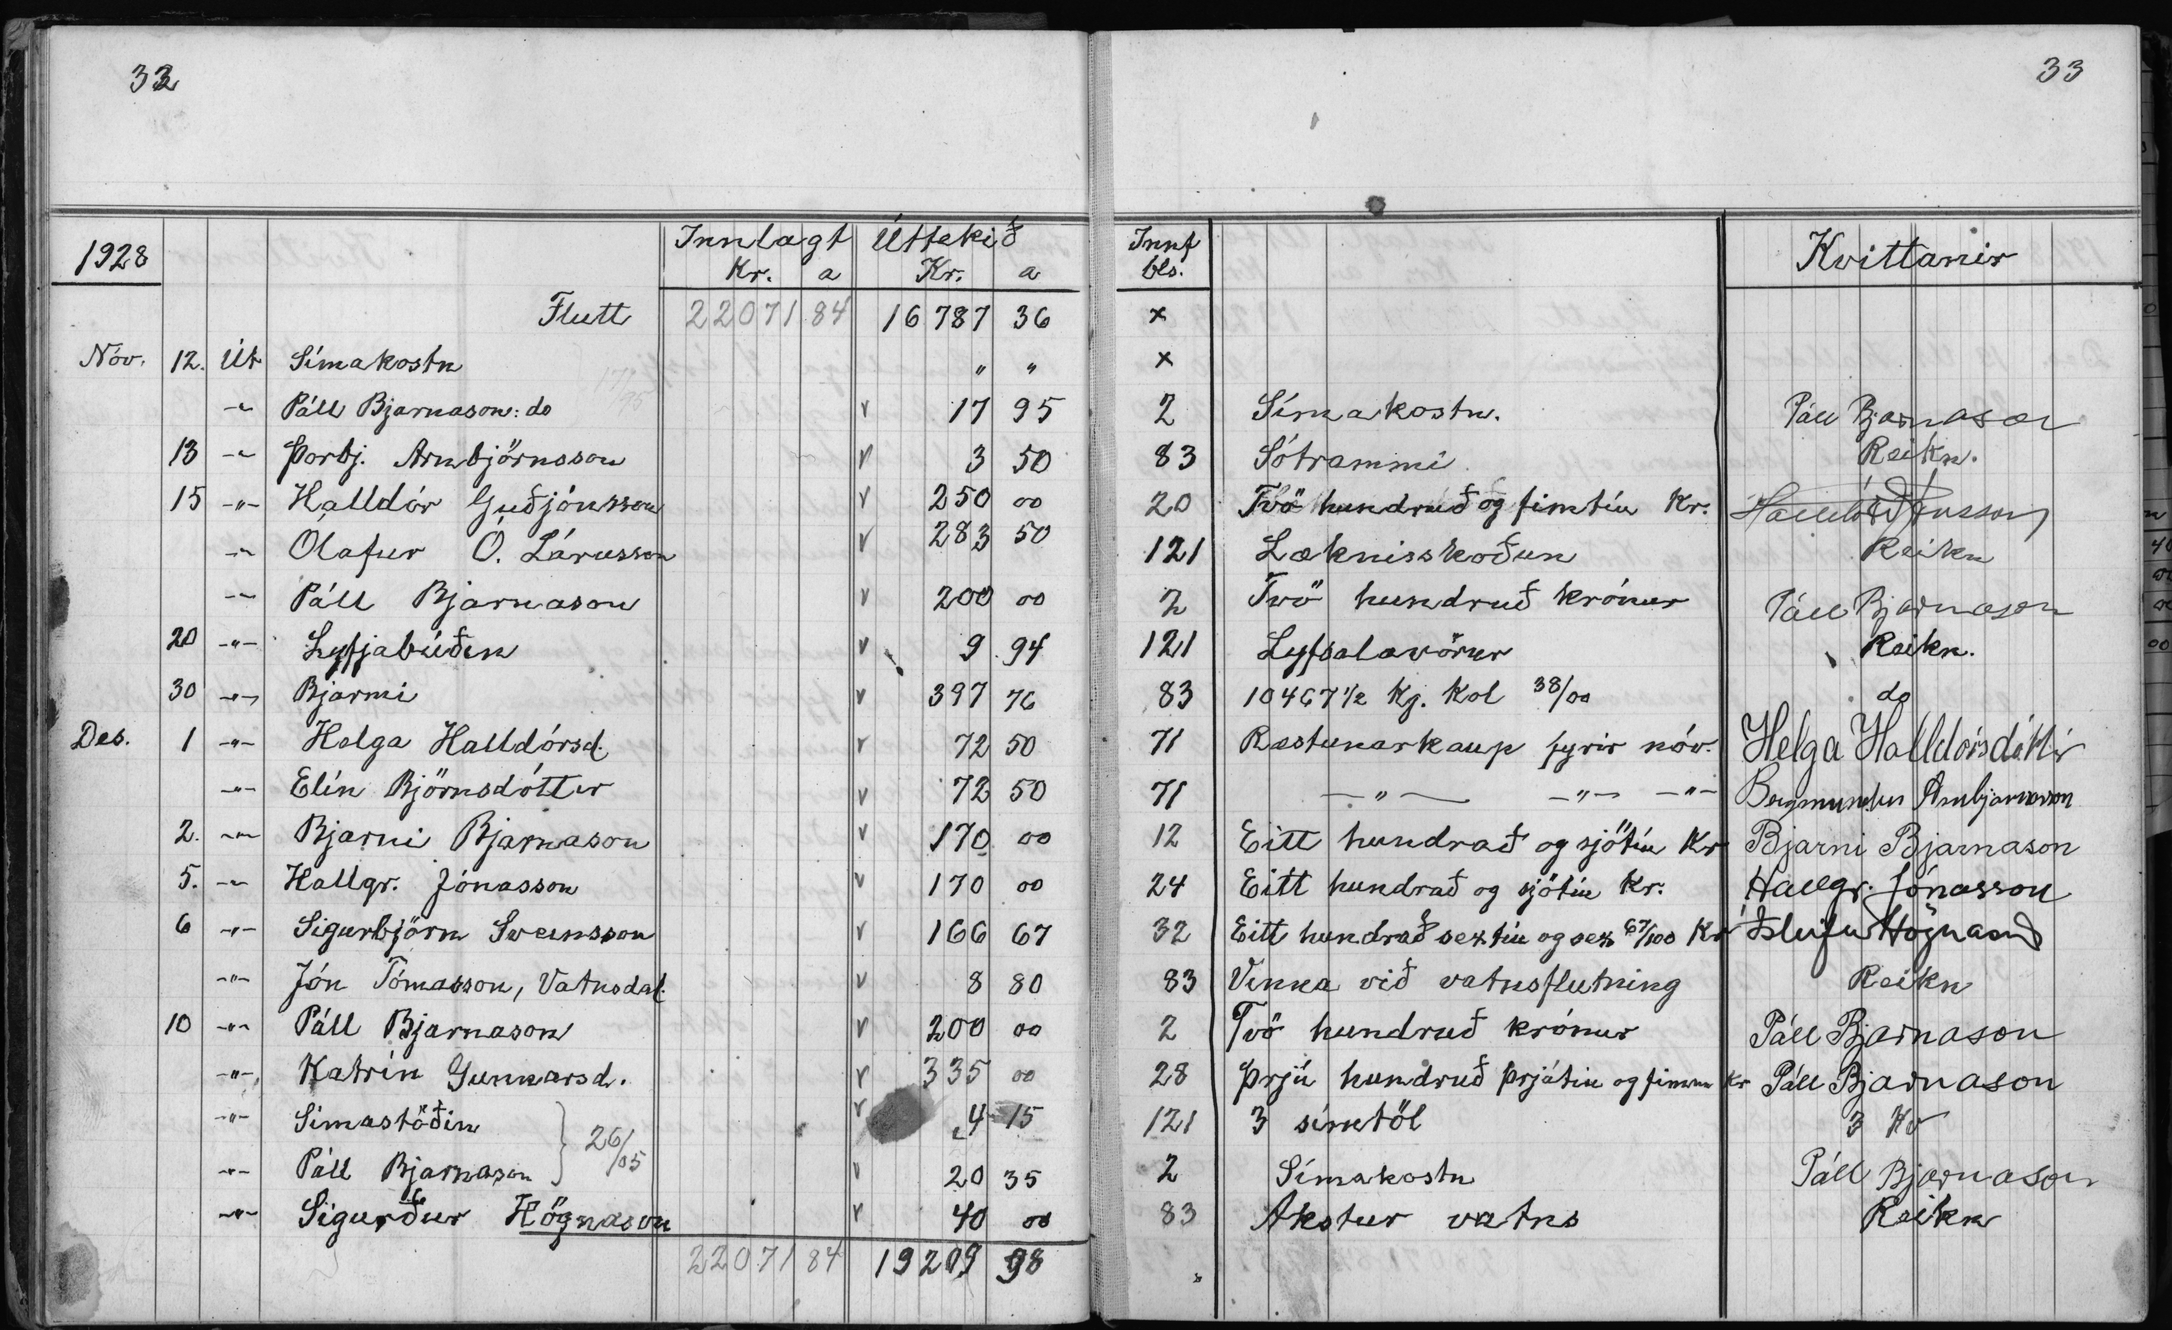 32
33
1928 Innlagt Úttekið Innf Kvittanir
Kr. a Kr. a bls.
Flutt 22071 84 16787 36 x
Nóv. 12. Út Símakostn " " x
-"- Páll Bjarnason: do 17/95 v 17 95 2 Símakostn. Páll Bjarnason
13 -"- Þorbj. Arnbjörnsson v 3 50 83 Sótrammi Reikn.
15 -"- Halldór Guðjónsson v 250 00 20 Tvö hundruð og fimtíu Kr.
-"- Ólafur Ó. Lárusson v 283 50 121 Læknisskoðun Reikn
-"- Páll Bjarnason v 200 00 2 Tvö hundruð krónur Páll Bjarnason
20 -"- Lyfjabúðin v 9 94 121 Lyfsalavörur Reikn.
30 -"- Bjarmi v 397 76 83 10467 1/2 Kg. Kol 38/00 do
Des. 1 -"- Helga Halldórsd. v 72 50 71 Ræstunarkaup fyrir nóv. Helga Halldórsdóttir
-"- Elín Björnsdóttir v 72 50 71 -"- -"- -"- Bergmundur Arnbjarnarson
2. -"- Bjarni Bjarnason v 170 00 12 Eitt hundrað og sjötíu Kr Bjarni Bjarnason
5. -"- Hallgr. Jónasson v 170 00 24 Eitt hundrað og sjötíu Kr. Hallgr. Jónasson
6 -"- Sigurbjörn Sveinsson v 166 67 32 Eitt hundrað sextíu og sex 67/100 Kr Ísleifur Högnason
-"- Jón Tómasson, Vatnsdal. v 8 80 83 Vinna við vatnsflutning Reikn
10 -"- Páll Bjarnason v 200 00 2 Tvö hundruð krónur Páll Bjarnason
-"- Katrín Gunnarsd. v 335 00 28 Þrjú hundruð þrjátíu og fimm Kr Páll Bjarnason
-"- Símastöðin v 4 15 121 3 símtöl 3 Kv
26/05
-"- Páll Bjarnason v 20 35 2 Símakostn Páll Bjarnason
-"- Sigurður Högnason v 40 00 83 Akstur vatns Reikn
22071 84 19209 98